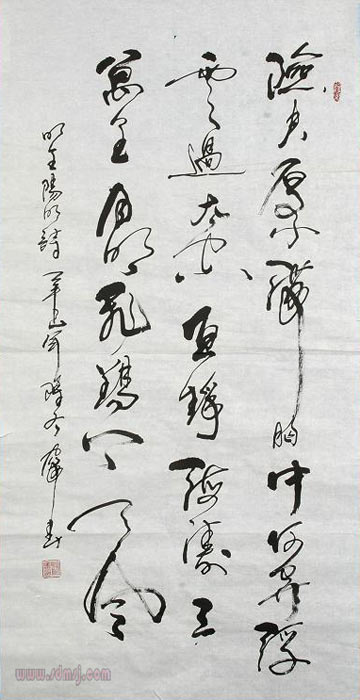 險夷原不滯胸中何異浮
雲過太空夜靜海濤三
萬里月明飛錫下天風
明王陽明詩 隆冬 書
www.sdmsj.com